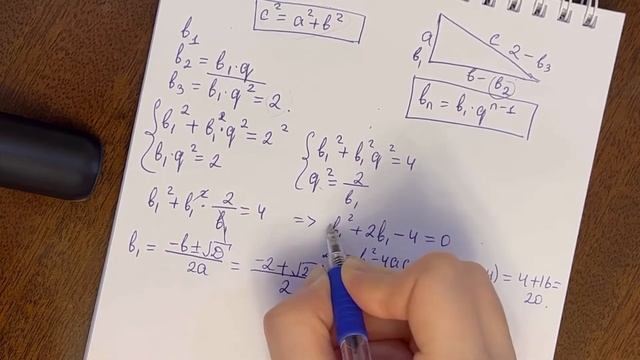 c² = a² + b²
b₁
b₂ = b₁·q
b₃ = b₁·q² = 2.
a
c 2 – b₃
b₁
b – b₂
bₙ = b₁·qⁿ⁻¹
{ b₁² + b₁²·q² = 2²
b₁·q² = 2
{ b₁² + b₁²q² = 4
q² = 2/b₁
b₁² + b₁²·2/b₁ = 4 => b₁² + 2b₁ – 4 = 0
b₁ = (–b ± √D)/2a = (–2 + √2)/2
²–4ac
) = 4 + 16 =
20.